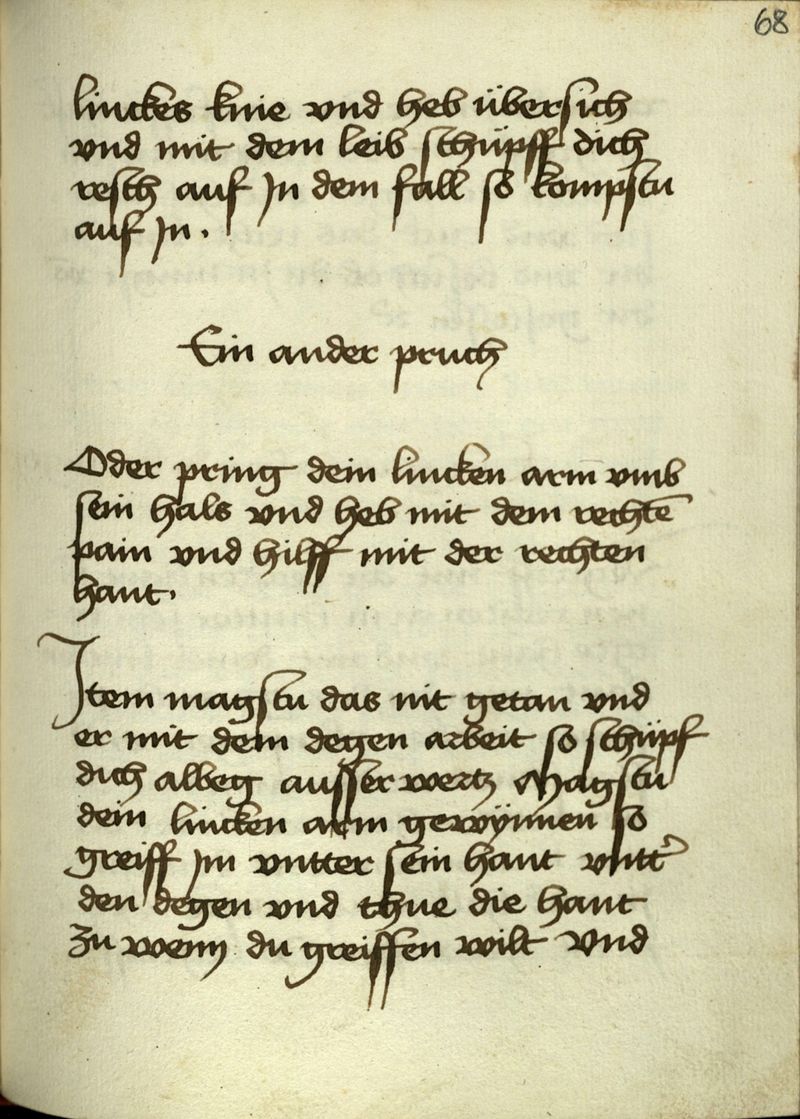 68
linckes knie vnd heb übersich
vnd mit dem leib schüpff dich
resch auf jn dem fall so kompstu
auf jn.
Ein ander pruch
Oder pring dein lincken arm vmb
sein hals vnd heb mit dem rechtē
pain vnd hilff mit der rechten
hant.
Item magstu das nit getan vnd
er mit dem degen arbeit so schüpf
dich albeg ausserwertz Magstu
dein lincken arm gewÿnnen so
greiff jm vntter sein hant vntt̾
den degen vnd thue die hant
zu wenn du greiffen wilt vnd